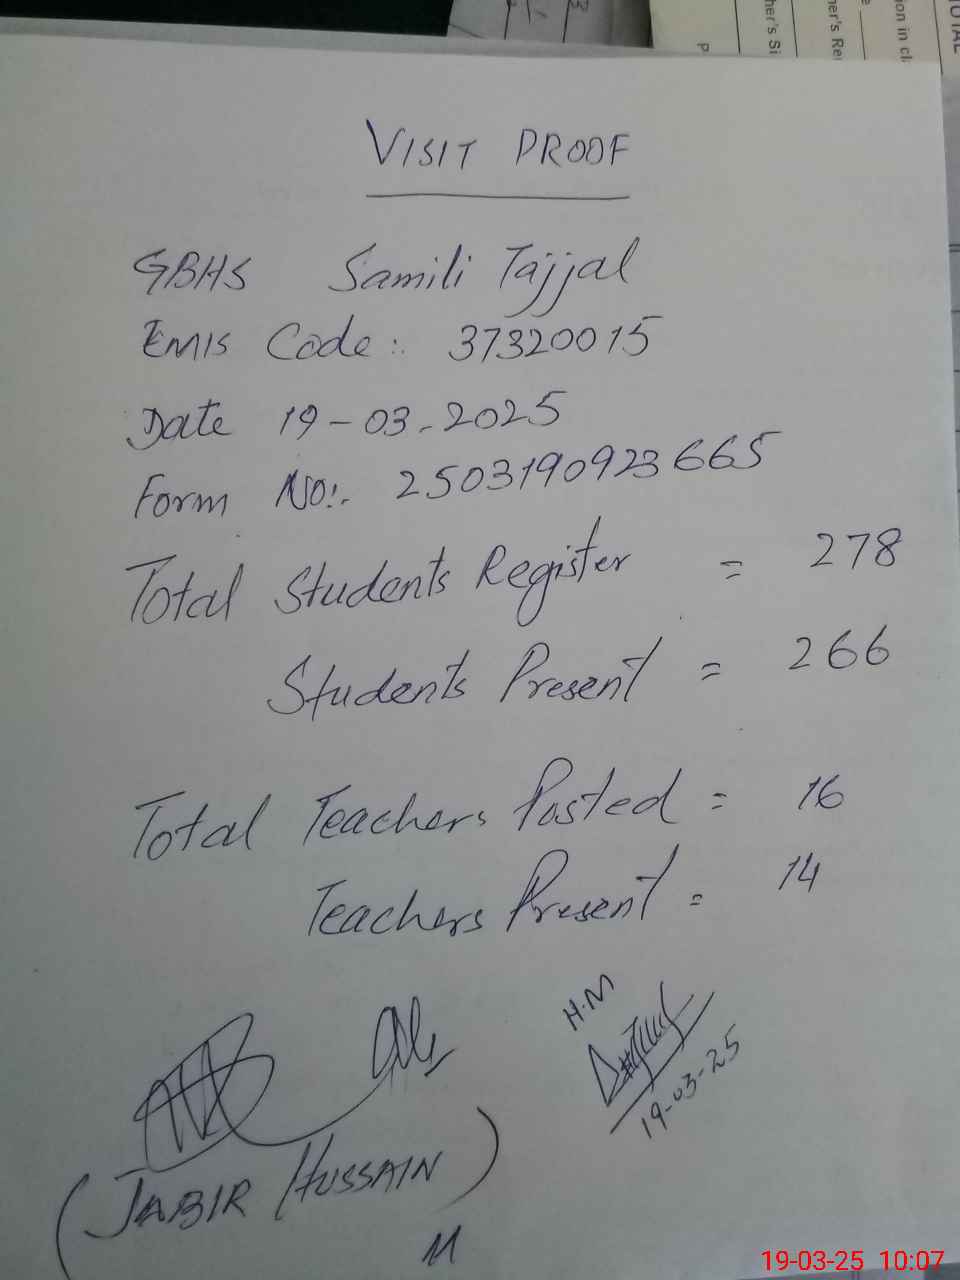 VISIT PROOF
GBHS Samili Tajjal
EMIS Code:. 37320015
Date 19-03-2025
Form No:. 2503190923665
Total Students Register = 278
Students Present = 266
Total Teachers Posted = 16
Teachers Present = 14
H.M
19-03-25
(JABIR HUSSAIN)
M
19-03-25 10:07